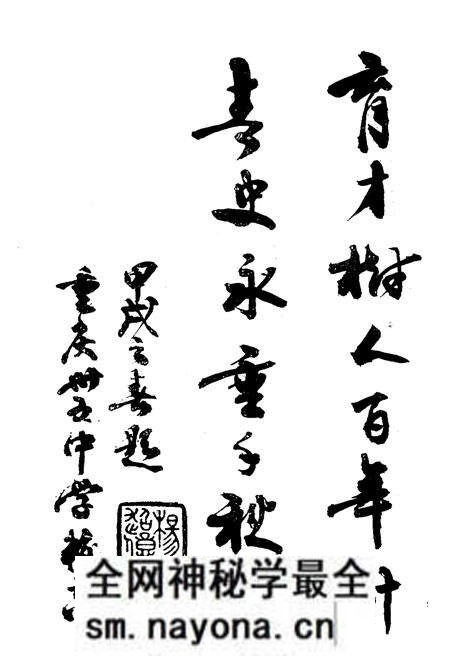 育才树人百年
青史永垂千秋
甲戌之春题
重庆卅五中学校
全网神秘学最全
sm.nayona.cn